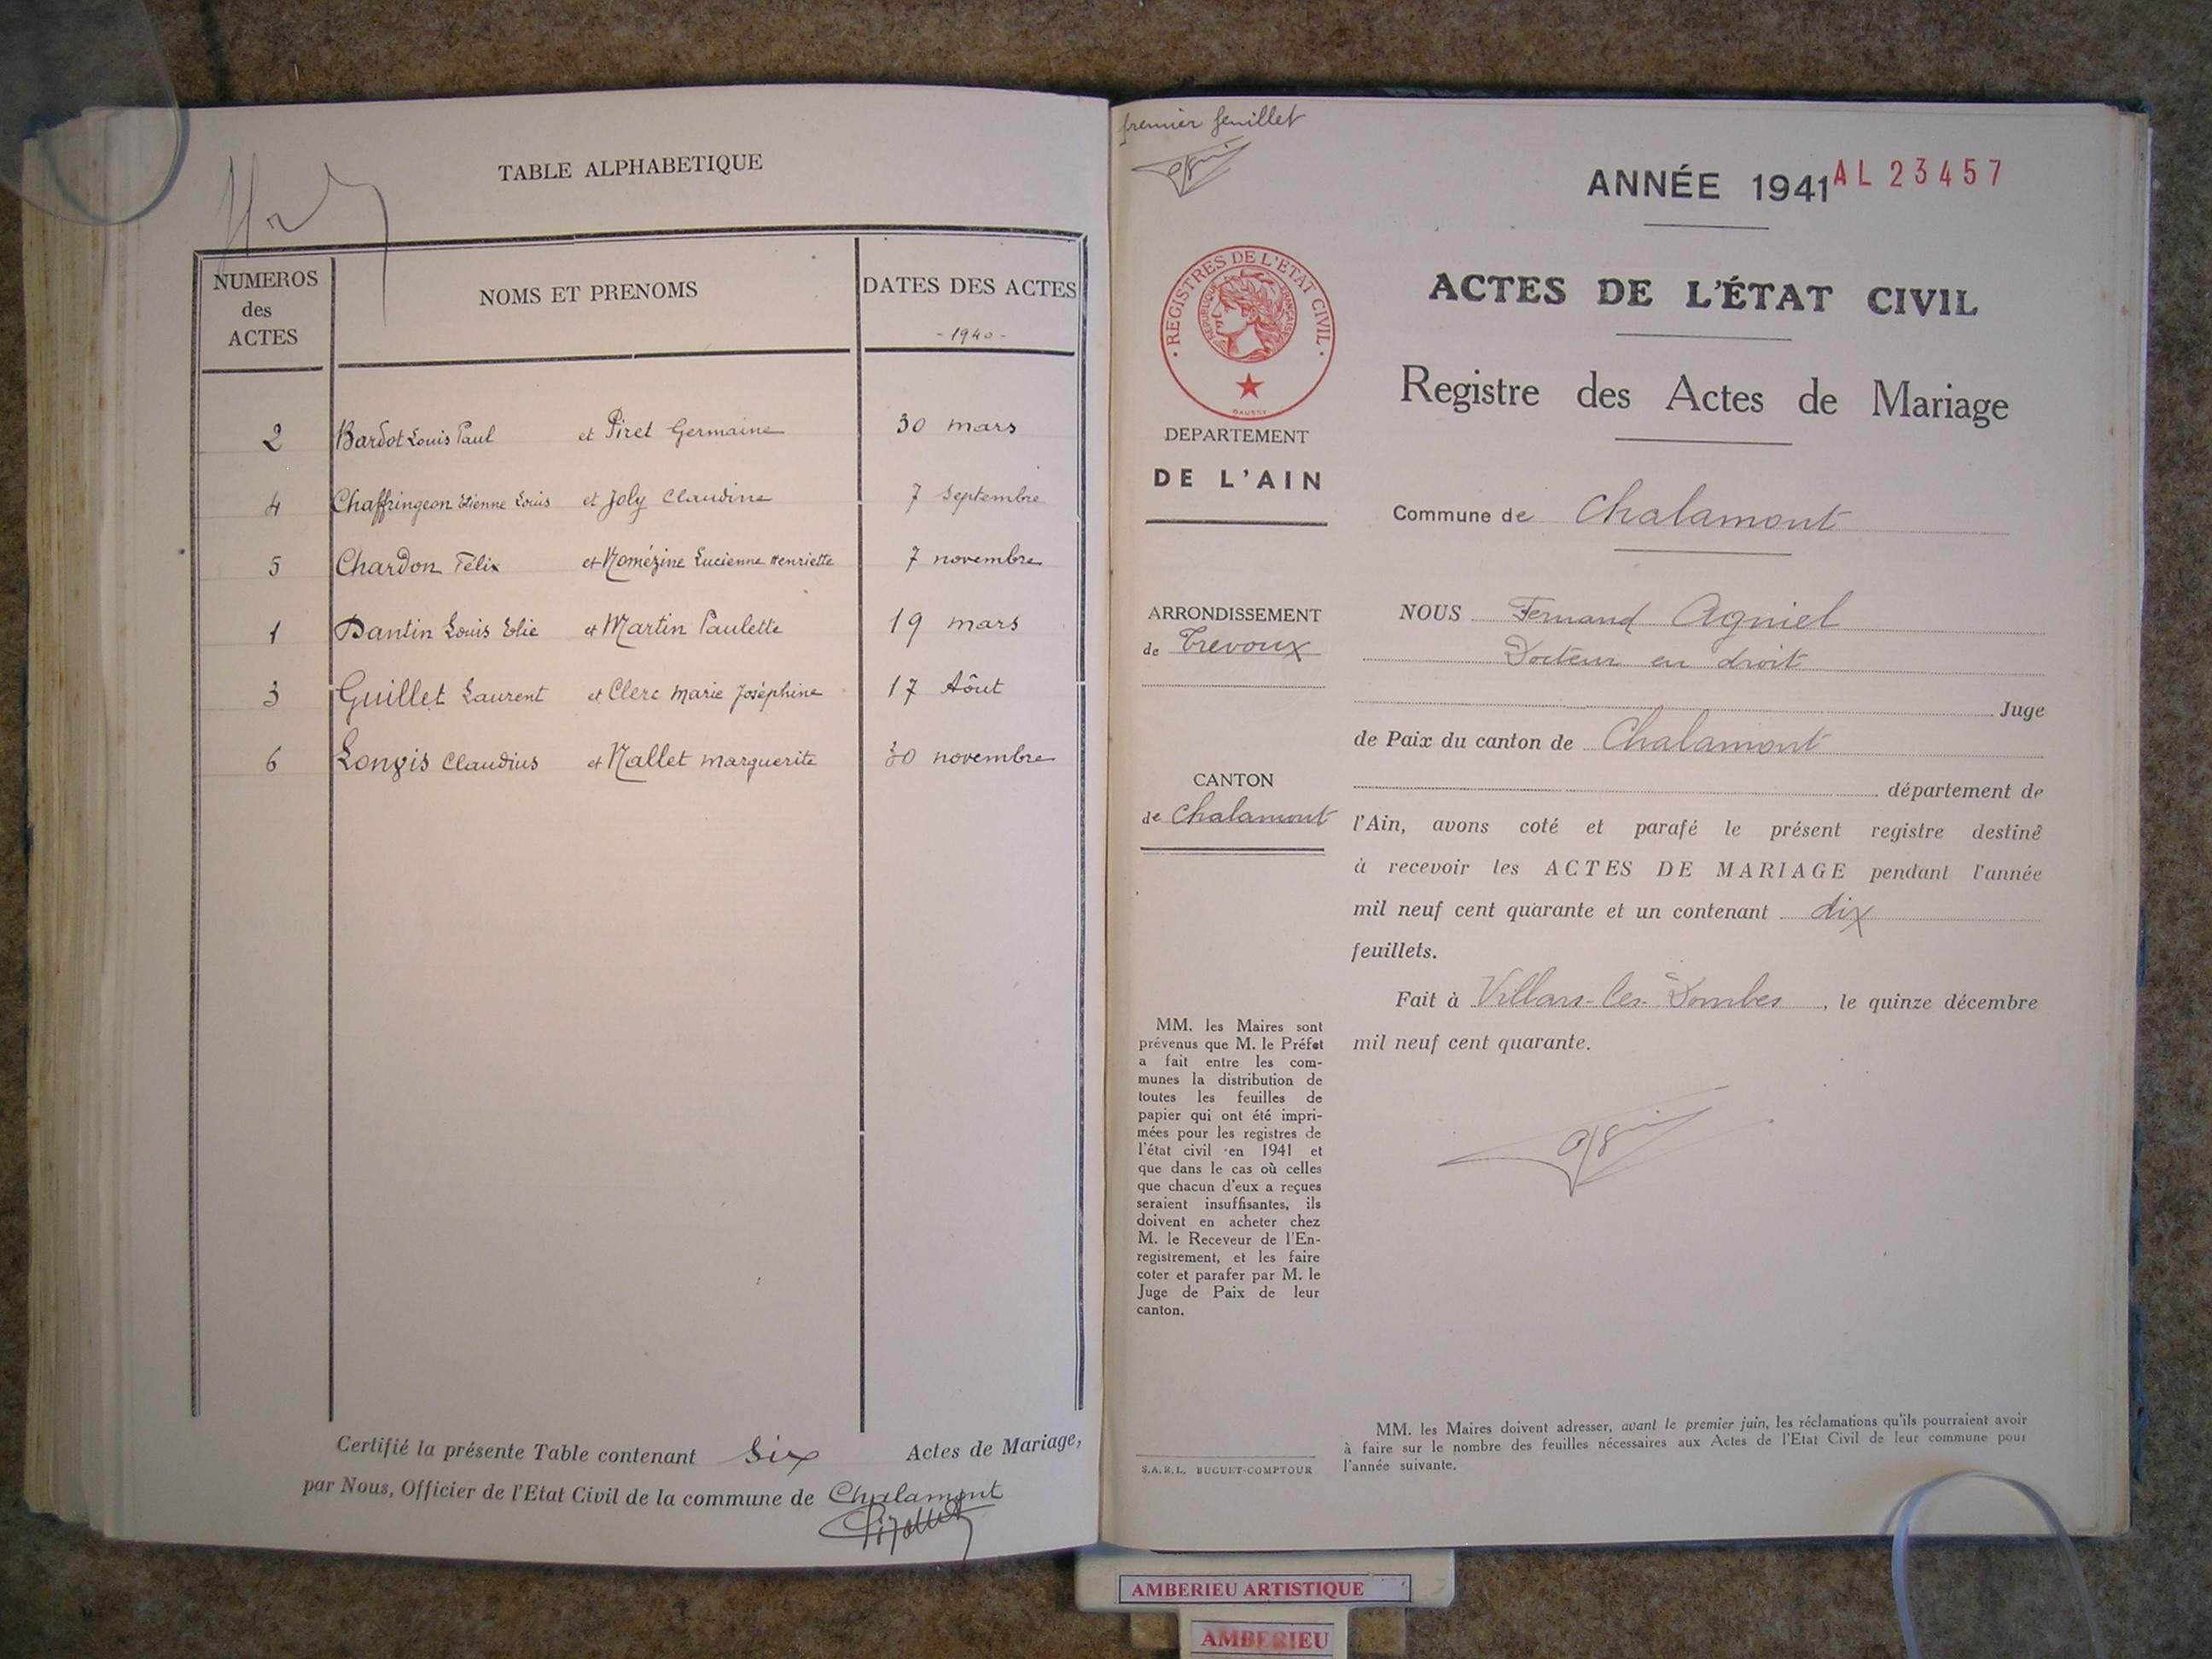 TABLE ALPHABETIQUE
NUMEROS
des
ACTES
NOMS ET PRENOMS
DATES DES ACTES
- 1940 -
2 Bardot Louis Paul et Piret Germaine 30 mars
4 Chaffringeon Etienne Louis et Joly Claudine 7 Septembre
5 Chardon Félix et Nomézine Lucienne Henriette 7 novembre
1 Dantin Louis Elie et Martin Paulette 19 mars
3 Guillet Laurent et Clerc Marie Joséphine 17 Aôut
6 Longis Claudius et Nallet Marguerite 30 novembre
Certifié la présente Table contenant Six Actes de Mariage,
par Nous, Officier de l'Etat Civil de la commune de Chalamont
premier feuillet
ANNÉE 1941 AL 23457
REGISTRES DE L'ETAT CIVIL
REPUBLIQUE FRANÇAISE
DAUSSY
ACTES DE L'ÉTAT CIVIL
Registre des Actes de Mariage
DEPARTEMENT
DE L'AIN
Commune de Chalamont
ARRONDISSEMENT
de Trevoux
CANTON
de Chalamont
NOUS Fernand Agniel
Docteur en droit
Juge
de Paix du canton de Chalamont
département de
l'Ain, avons coté et parafé le présent registre destiné
à recevoir les ACTES DE MARIAGE pendant l'année
mil neuf cent quarante et un contenant dix
feuillets.
Fait à Villars-les-Dombes, le quinze décembre
mil neuf cent quarante.
MM. les Maires sont
prévenus que M. le Préfet
a fait entre les com-
munes la distribution de
toutes les feuilles de
papier qui ont été impri-
mées pour les registres de
l'état civil en 1941 et
que dans le cas où celles
que chacun d'eux a reçues
seraient insuffisantes, ils
doivent en acheter chez
M. le Receveur de l'En-
registrement, et les faire
coter et parafer par M. le
Juge de Paix de leur
canton.
S.A.R.L. BUGUET-COMPTOUR
MM. les Maires doivent adresser, avant le premier juin, les réclamations qu'ils pourraient avoir
à faire sur le nombre des feuilles nécessaires aux Actes de l'Etat Civil de leur commune pour
l'année suivante.
AMBERIEU ARTISTIQUE
AMBERIEU